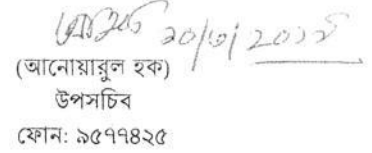 ২০/৩/২০১৮
(আনোয়ারুল হক)
উপসচিব
ফোন: ৯৫৭৭৪২৫